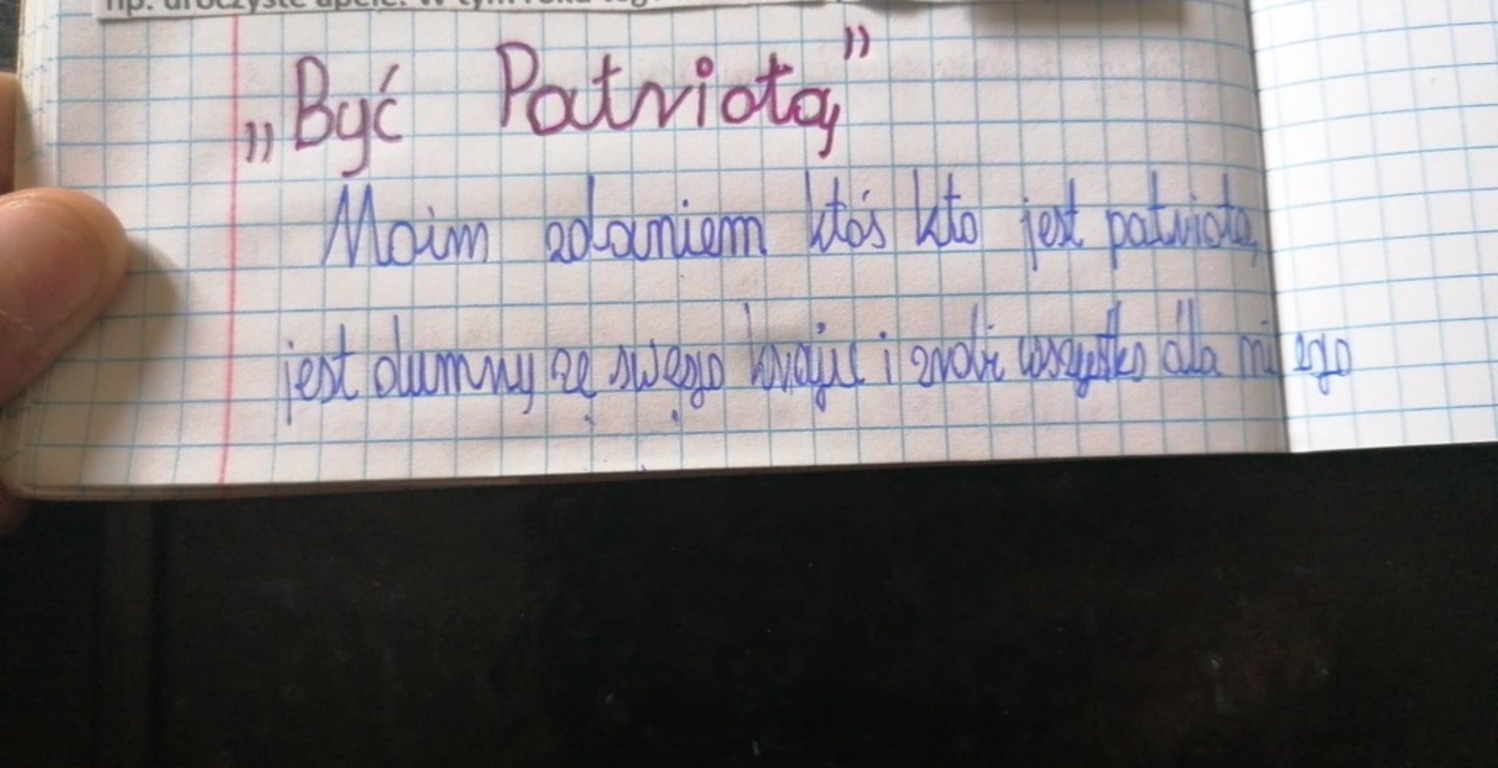 np. uroczyste apele. W tym roku
„Być Patriotą”
Moim zdaniem ktoś kto jest patriotą
jest dumny ze swego kraju i zrobi wszystko dla niego